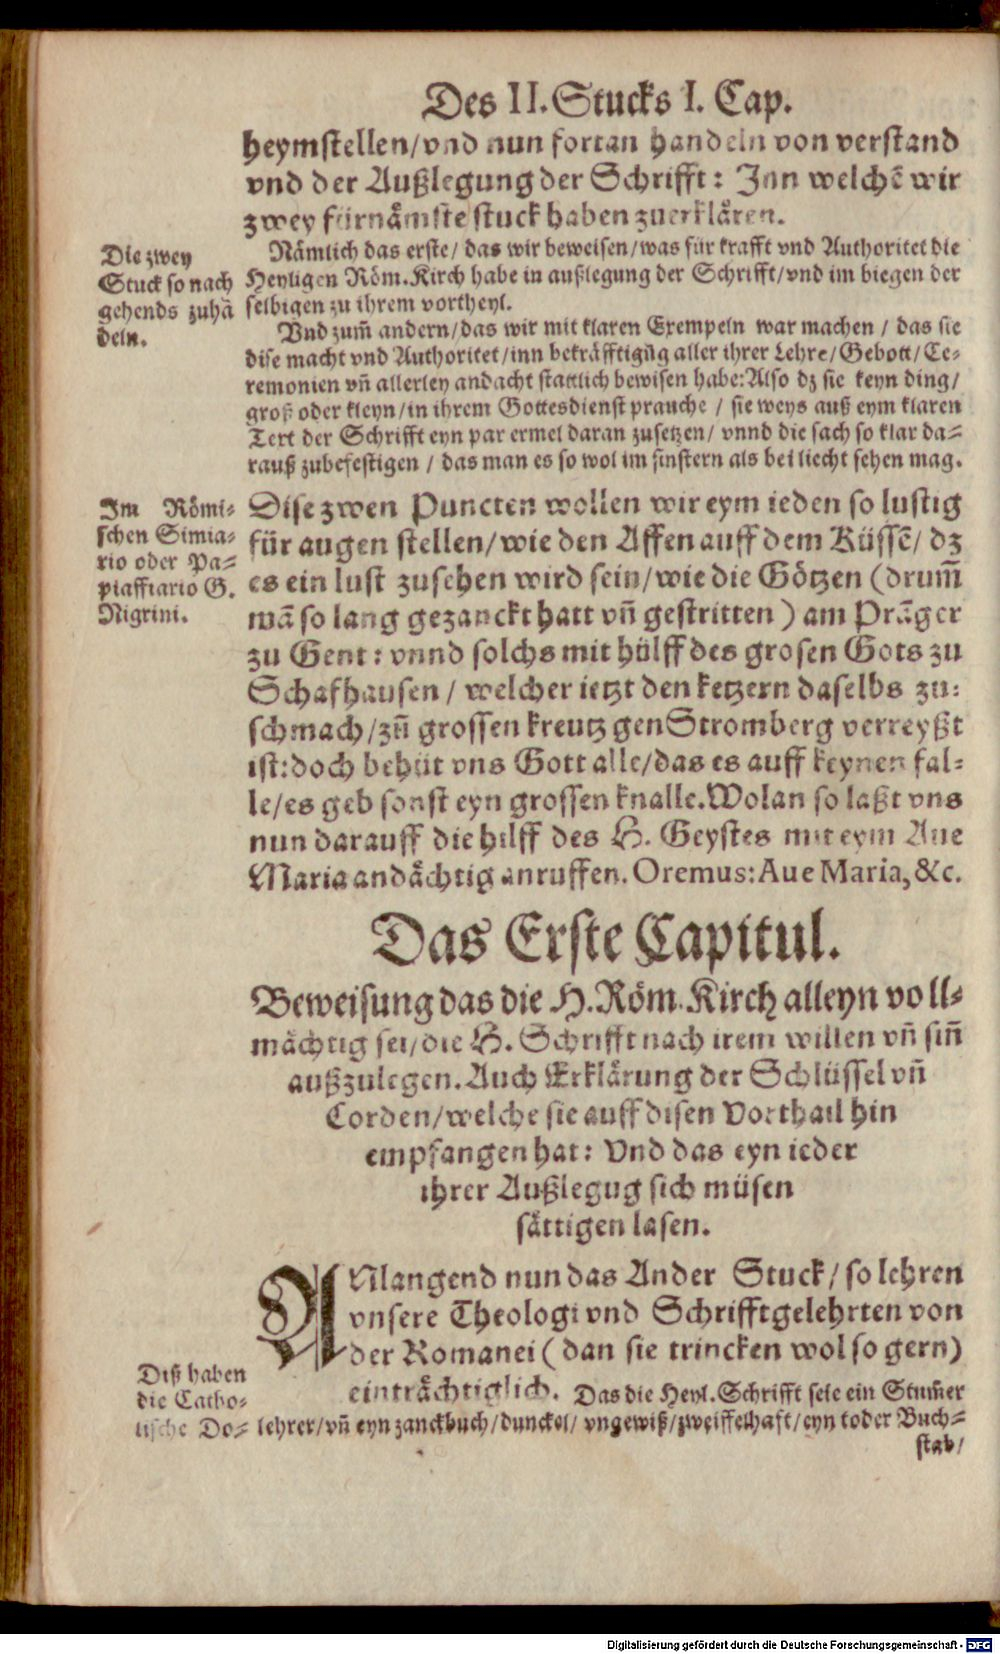 Des II. Stucks I. Cap.
heymstellen/vnd nun fortan handeln von verstand
vnd der Außlegung der Schrifft: Inn welchẽ wir
zwey fürnämste stuck haben zuerklären.
Die zwey
Stuck so nach
gehends zuhã
deln.
Nämlich das erste/ das wir beweisen/was für krafft vnd Authoritet die
Heyligen Röm. Kirch habe in außlegung der Schrifft/vnd im biegen der
selbigen zu ihrem vortheyl.
Vnd zum̃ andern/das wir mit klaren Exempeln war machen / das sie
dise macht vnd Authoritet/inn bekräfftigũg aller ihrer Lehre/Gebott/Ce-
remonien vñ allerley andacht stattlich bewisen habe: Also dz sie keyn ding/
groß oder kleyn/in ihrem Gottesdienst prauche / sie weys auß eym klaren
Text der Schrifft eyn par ermel daran zusetzen/ vnnd die sach so klar da-
rauß zubefestigen / das man es so wol im finstern als bei liecht sehen mag.
Im Römi-
schen Simia-
rio oder Pa-
piaffiario G.
Nigrini.
Dise zwen Puncten wollen wir eym ieden so lustig
für augen stellen/wie den Affen auff dem Küssẽ/ dz
es ein lust zusehen wird sein/wie die Götzen (drum̃
wã so lang gezanckt hatt vñ gestritten ) am Pränger
zu Gent: vnnd solchs mit hülff des grosen Gots zu
Schafhausen / welcher ietzt den ketzern daselbs zu:
schmach/zũ grossen kreutz gen Stromberg verreyßt
ist: doch behüt vns Gott alle/das es auff keynen fal-
le/es geb sonst eyn grossen knalle. Wolan so laßt vns
nun darauff die hilff des H. Geystes mit eym Aue
Maria andächtig anruffen. Oremus: Aue Maria, &c.
Das Erste Capitul.
Beweisung das die H. Röm. Kirch alleyn voll-
mächtig sei/die H. Schrifft nach irem willen vñ siñ
außzulegen. Auch Erklärung der Schlüssel vñ
Corden/welche sie auff disen Vorthail hin
empfangen hat: Vnd das eyn ieder
ihrer Außlegug sich müsen
sättigen lasen.
ANlangend nun das Ander Stuck/ so lehren
vnsere Theologi vnd Schrifftgelehrten von
der Romanei ( dan sie trincken wol so gern)
einträchtiglich. Das die Heyl. Schrifft seie ein Stum̃er
lehrer/vñ eyn zanckbuch/dunckel/ vngewiß/zweiffelhaft/eyn toder Buch-
Diß haben
die Catho-
lische Do-
stab/
Digitalisierung gefördert durch die Deutsche Forschungsgemeinschaft - DFG